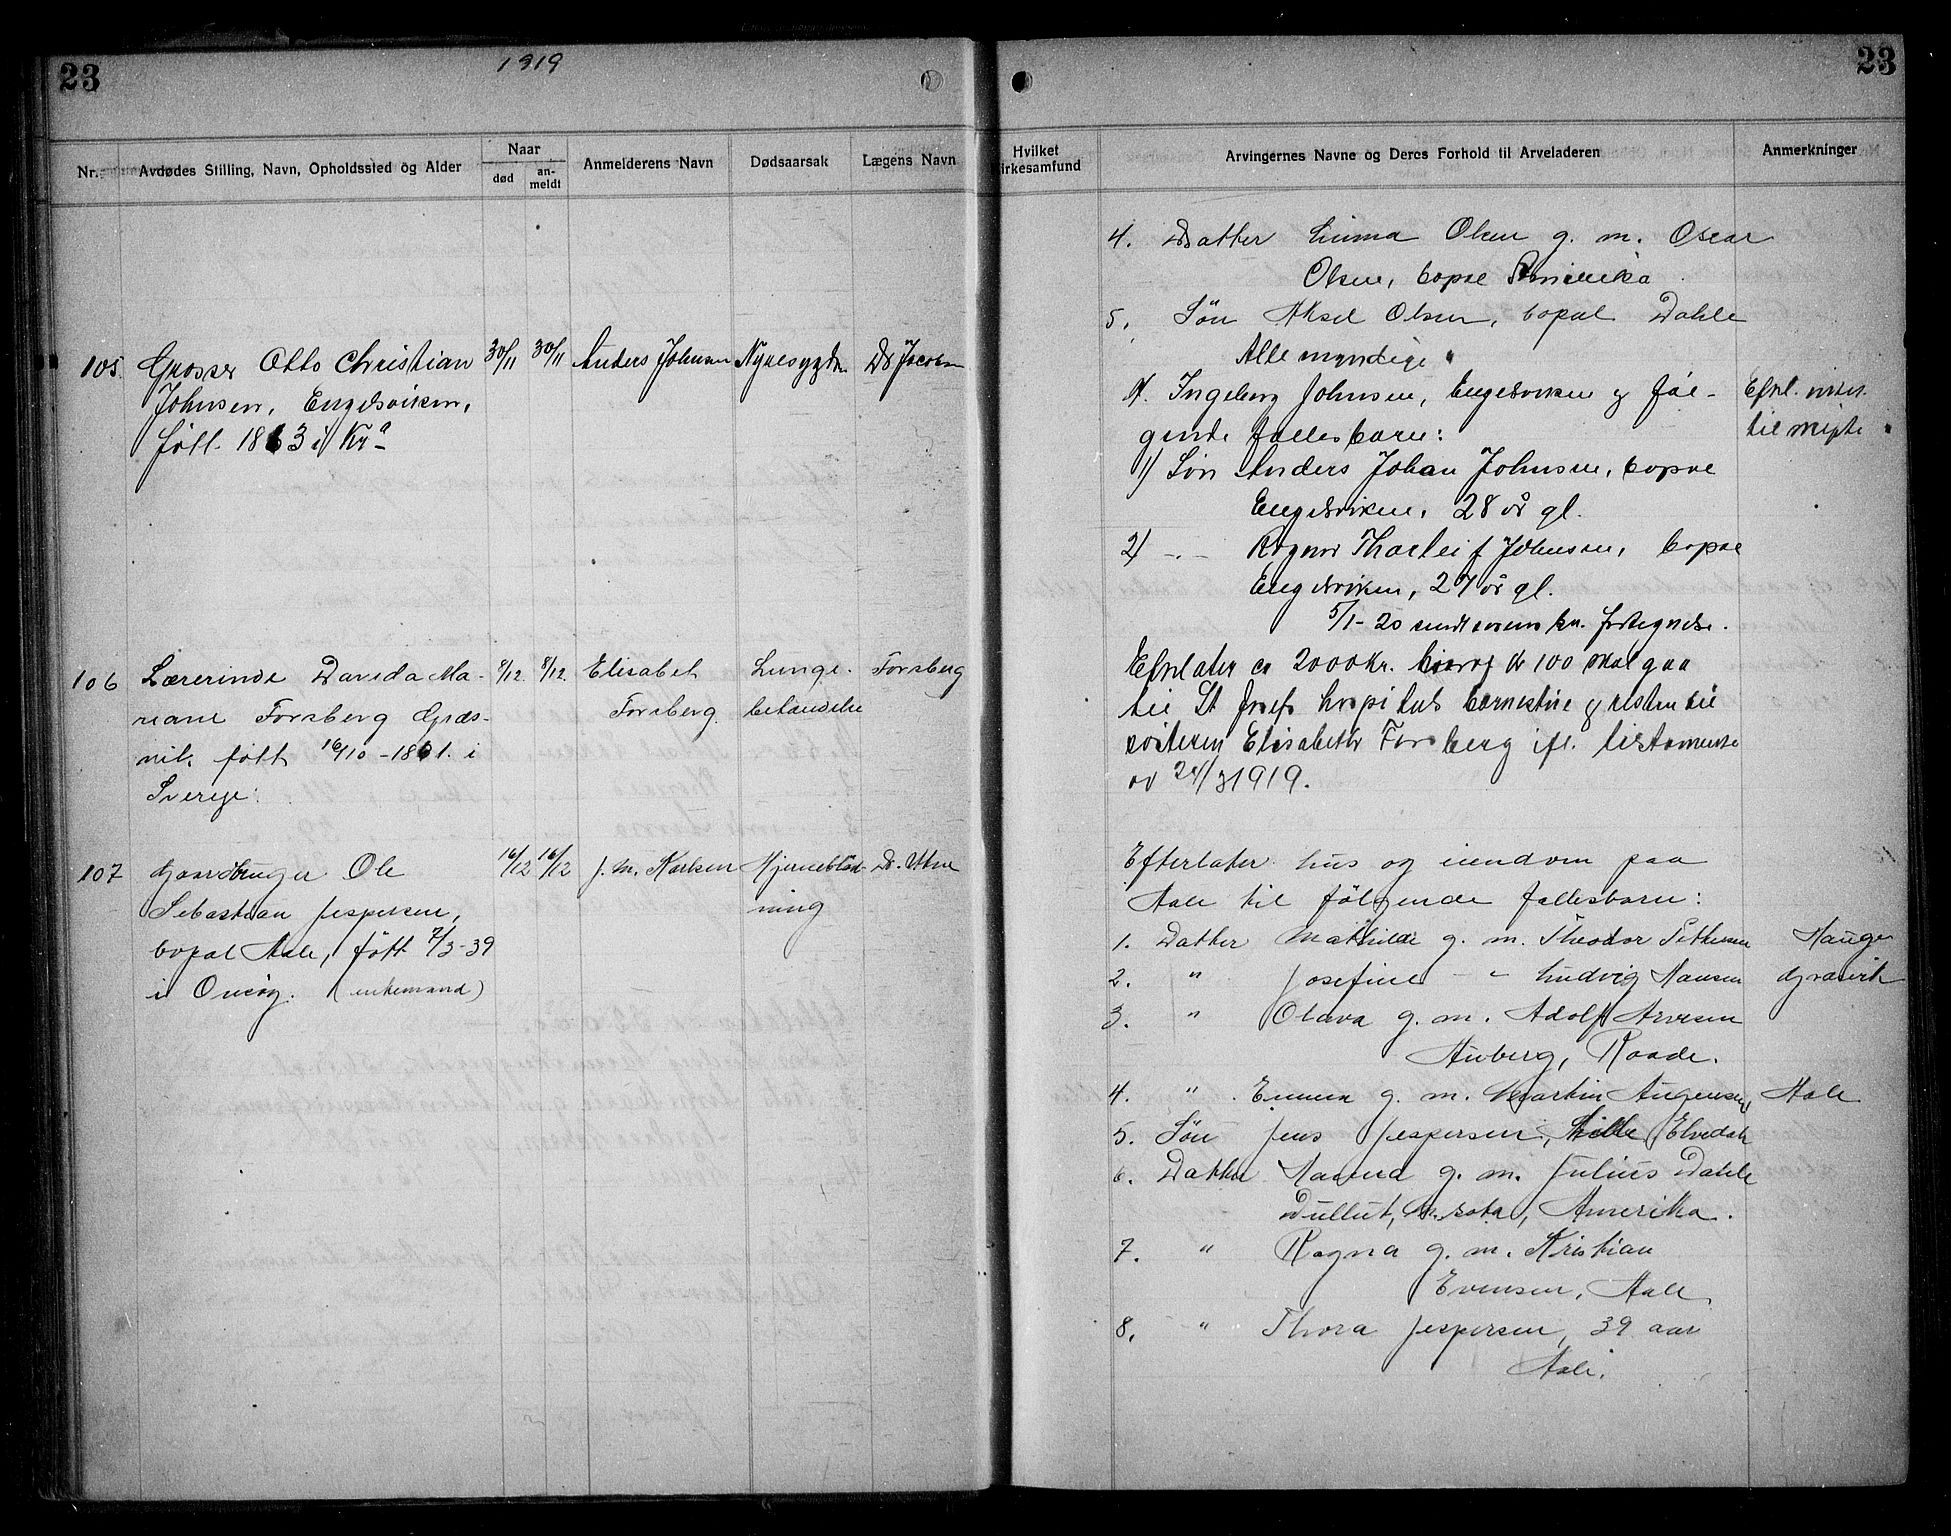 23
1919
Nr.
Avdødes Stilling, Navn, Opholdssted og Alder
Naar
død
an-
meldt
Anmelderens Navn
Dødsaarsak
Lægens Navn
105.
Grosser Otto Christian
Johnsen, Engelsviken,
født 1863 i Kra
30/11
30/11
Anders Johnsen
Nyresygdm
Dr Jacobsen
106
Lærerinde Davida Ma-
riane Forsberg Græs-
vik, født 16/10-1861. i
Sverige.
8/12
8/12.
Elisabet
Forsberg
Lunge-
betændelse
Forsberg
107
Gaardbruger Ole
Sebastian Jespersen,
bopæl Aale, født 7/3-39
i Onsøy. (enkemand)
16/12
16/12
J. M. Karlsen
Hjerneblød-
ning
Dr. Utne
23
Hvilket
irkesamfund
Arvingernes Navne og Deres Forhold til Arveladeren
Anmerkninger
4. Datter Emma Olsen g. m. Oscar
Olsen, bopæl Amerika
5. Søn Aksel Olsen, bopæl Dahle
Alle myndige
Ingeborg Johnsen, Engelsviken og føl-
gende fællesbarn:
Efterl.
til skifte
1) Søn Anders Johan Johnsen, bopæl
Engelsviken, 28 år gl.
2) -"- Ragnar Thorleif Johnsen, bopæl
Engelsviken, 27 år gl.
5/1-20 sendt kr. fortegnelse.
Efterlater ca 2000 Kr. hvorav kr 100 skal gaa
til St Josefs hospitals barnestue og resten til
søsteren Elisabeth Forsberg ifl. testamente
av 24/3 1919.
Efterlater hus og eiendom paa
Aale til følgende fællesbarn:
1. Datter Mathilde g. m. Theodor Pettersen
Hauge
2. " Josefine - " - Ludvig Hansen
Græsvik
3. " Olava g. m. Adolf Arvesen
Auberg, Raade.
4. " Emma g. m. Martin Augensen,
Aale
5. Søn Jens Jespersen, Lille Elvedah
6. Datter Hanna g. m. Julius Dahle
Dullut, M.sota, Amerika.
7. " Ragna g. m. Kristian
Evensen, Aale
8. " Thora Jespersen, 39 aar
Aale.